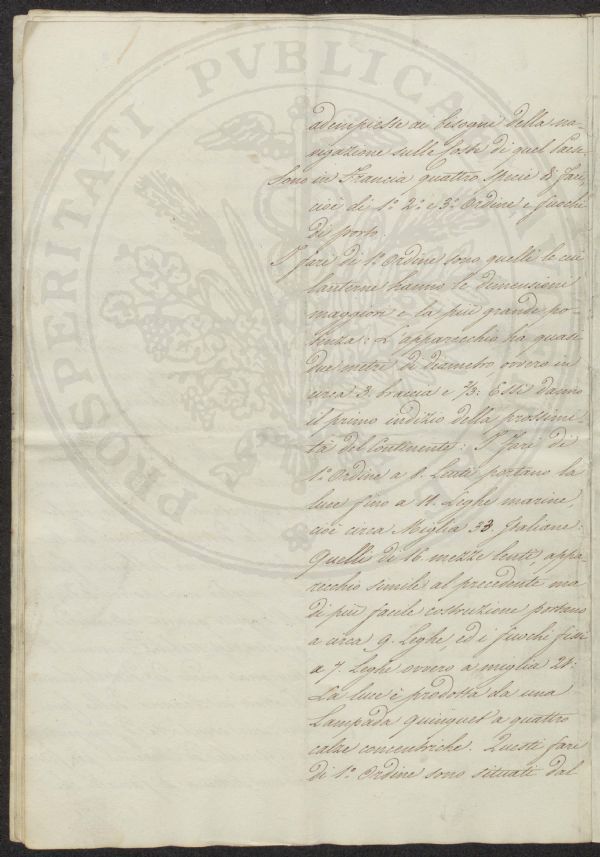 adempiesse ai bisogni della na-
vigazione sulle Coste di quel Paese.
Sono in Francia quattro specie di fari,
cioè di 1.° 2.° e 3.° Ordine e fuochi
di porto.
I fari di 1.° Ordine sono quelli le cui
lanterne hanno le dimensioni
maggiori e la più grande po-
tenza: L'apparecchio ha quasi
due metri di diametro ovvero in
circa 3. braccia e 2/3: Essi danno
il primo indizio della prossimi-
tà del Continente: I Fari di
1.° Ordine a 8. Lenti portano la
luce fino a 11. Leghe marine,
cioè circa Miglia 33. Italiane:
Quelli di 16. mezze lenti, appa-
recchio simile al precedente ma
di più facile costruzione portano
a circa 9. Leghe, ed i fuochi fissi
a 7. Leghe ovvero a miglia 21:
La luce è prodotta da una
Lampada Quinquet a quattro
calze concentriche. Questi fari
di 1.° Ordine sono situati dal
PROSPERITATI PVBLICAE